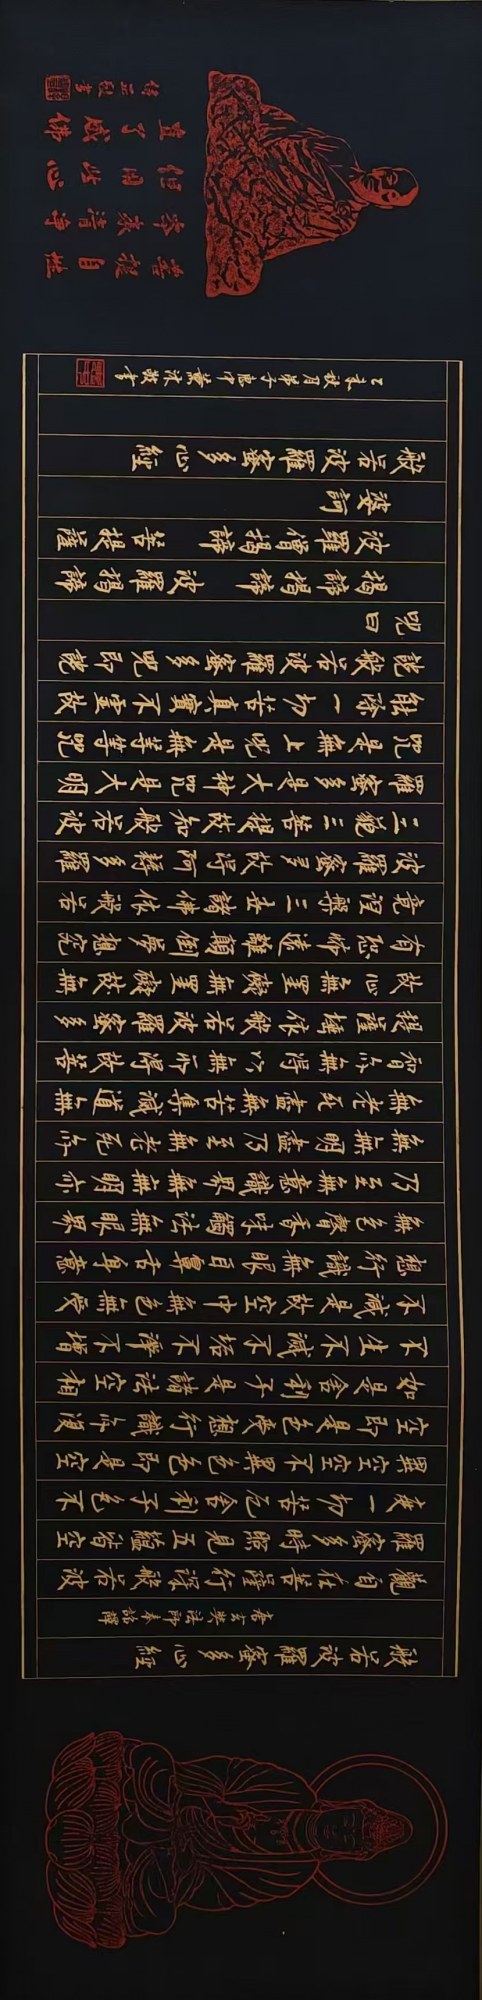 般若波羅蜜多心經
唐玄奘法師奉詔譯
觀自在菩薩行深般若波
羅蜜多時照見五蘊皆空
度一切苦厄舍利子色不
異空空不異色色即是空
空即是色受想行識亦復
如是舍利子是諸法空相
不生不滅不垢不淨不增
不減是故空中無色無受
想行識無眼耳鼻舌身意
無色聲香味觸法無眼界
乃至無意識界無無明亦
無無明盡乃至無老死亦
無老死盡無苦集滅道無
智亦無得以無所得故菩
提薩埵依般若波羅蜜多
故心無罣礙無罣礙故無
有恐怖遠離顛倒夢想究
竟涅槃三世諸佛依般若
波羅蜜多故得阿耨多羅
三藐三菩提故知般若波
羅蜜多是大神咒是大明
咒是無上咒是無等等咒
能除一切苦真實不虛故
說般若波羅蜜多咒即說
咒曰
揭諦揭諦 波羅揭諦
波羅僧揭諦 菩提薩
婆訶
般若波羅蜜多心經
乙未秋月弟子惠中薰沐敬書
菩提自性
本來清淨
但用此心
直了成佛